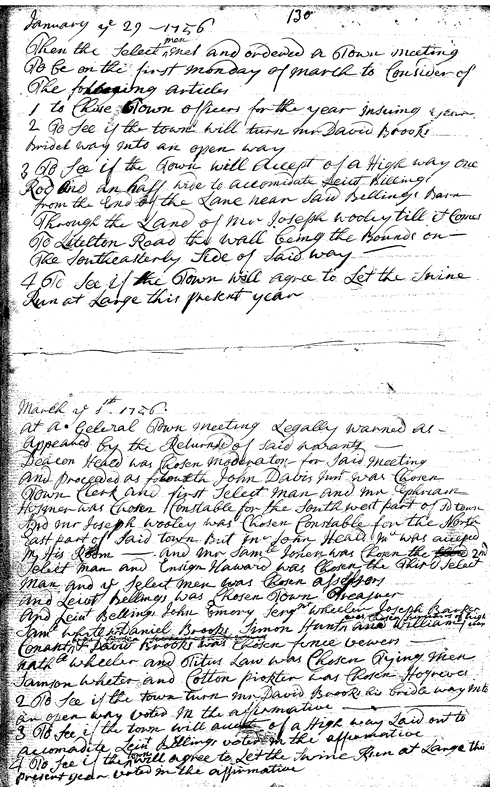 130
January ye 29 - 1756
Then the Select men met and ordered a Town meeting
To be on the first monday of march to Consider of
The following articles
1 to Chuse Town officers for the year Insuing
2 To See if the town will turn mr David Brooks
Bridel way into an open way
3 To See if the Town will accept of a High way one
Rod and an half wide to accomidate Leiut Billings
from the End of the Lane near Said Billings Barn
Through the Land of Mr Joseph Wooley till it Comes
To Litelton Road the wall being the Bounds on
The Southeasterly Side of Said way
4 To See if the Town will agree to Let the Swine
Run at Large this present year
March ye 1st 1756
at a General Town meeting Legally warned as
appeared by the Returns of Said warants
Deacon Heald was Chosen moderator for Said Meeting
and proceeded as John Davis was Chosen
Town Clerk and first Select man and mr Ephraim
Hosmer was Chosen Constable for the South west part of sd town
and mr Joseph Wooley was Chosen Constable for the North
East part of Said town But mr John Heald was
In His Room - and Mr Samll Jones was Chosen the 2nd
Select man and Ensign Haward was Chosen the Third Select
Man and ye Select Men was Chosen assessors
and Leiut Billings was Chosen Town Treasurer
And Leiut Billings John Emory wheeler Joseph Barker
Saml Daniel Brooks Simon Hunt and William
Conant & David Brooks was Chosen fence vewers
wheeler and Titus Law was Chosen Tything Men
Samson wheler and Cotton was Chosen Hogreves
2 To See if the town turn mr David Brooks his bridle way into
an open way voted in the affirmative
3 To See if the town will accept of a High way Laid out to
accomadite Leiut Billings voted in the affirmative
4 To See if the town will agree to Let the Swine Run at Large this
present year voted in the affirmative